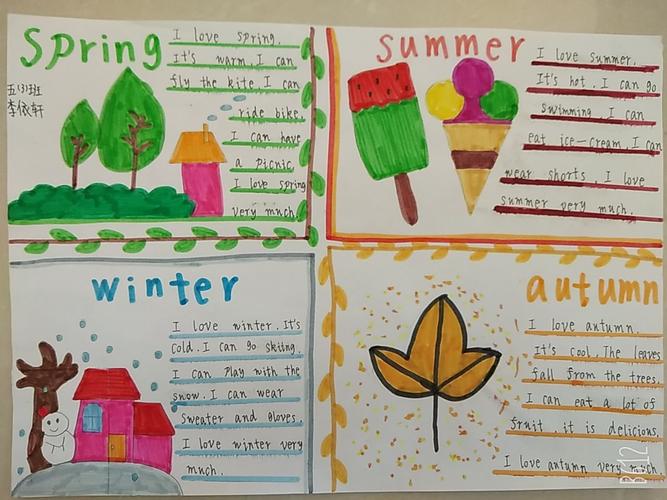 Spring
I love spring.
It's warm. I can
fly the kite. I can
ride bike.
I can have
a picnic.
I love spring
very much.
五(3)班
李依轩
summer
I love summer.
It's hot. I can go
swimming. I can
eat ice-cream. I can
wear shorts. I love
summer very much.
winter
I love winter. It's
cold. I can go skiing.
I can play with the
snow. I can wear
sweater and gloves.
I love winter very
much.
autumn
I love autumn.
It's cool. The leaves
fall from the trees.
I can eat a lot of
fruit, it is delicious.
I love autumn very much.